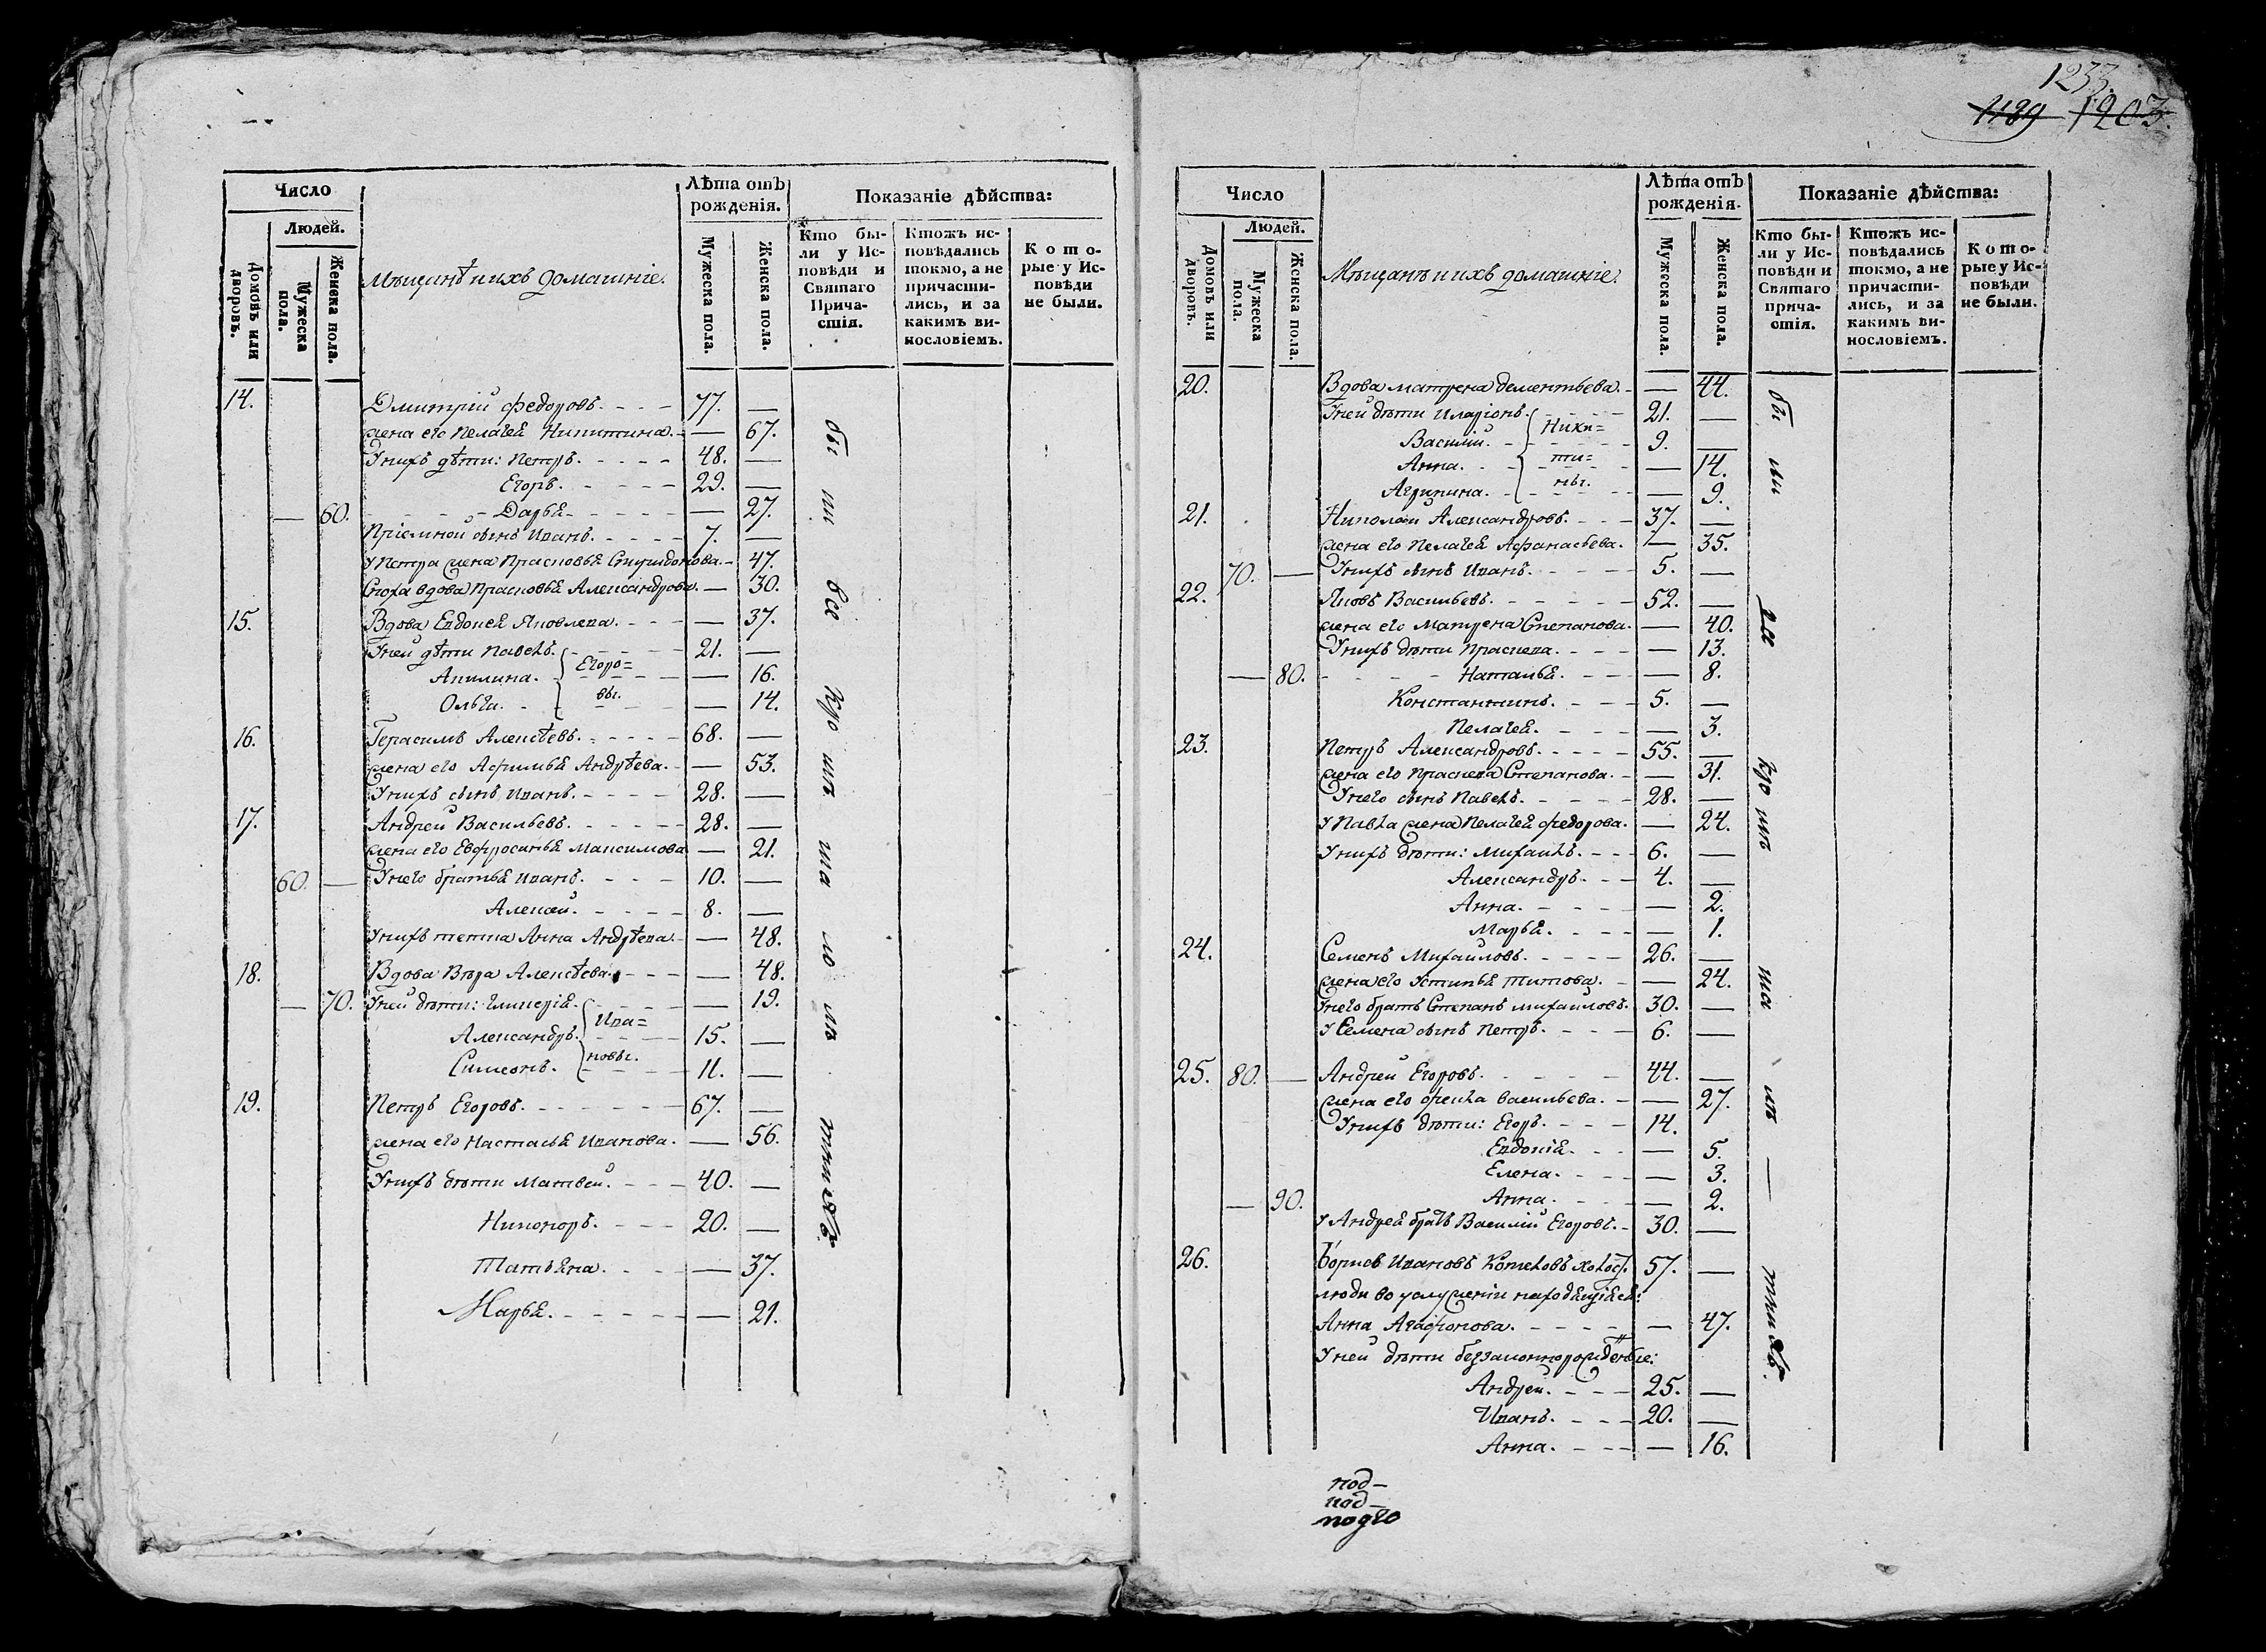 1233.
1189 1203.
Число
Людей.
Домовъ или дворовъ.
Мужеска пола.
Женска пола.
Мѣщанѣ и ихъ домашніе.
Лѣта отъ рожденія.
Мужеска пола.
Женска пола.
Показаніе дѣйства:
Кто бы-
ли у Ис-
повѣди и
Святаго
Прича-
стія.
Ктожъ ис-
повѣдались
токмо, а не
причасти-
лись, и за
какимъ ви-
нословіемъ.
Кото-
рые у Ис-
повѣди
не были.
14. Дмитрій Федоровъ. 77. —
жена его Пелагея Никитина. — 67.
У нихъ дѣти: Петръ. 48. —
Егоръ. 29. —
— 60. Дарья — 27.
Пріемной сынъ Иванъ. 7. —
У Петра жена Прасковья Спиридонова. — 47.
Сноха вдова Прасковья Александрова. — 30.
15. Вдова Евдокея Яковлева. — 37.
У ней дѣти Павелъ. 21. —
Егоро=
Акилина. — 16.
вы.
Ольга. — 14.
16. Герасимъ Алексѣевъ. 68. —
жена его Афимья Андрѣева. — 53.
У нихъ сынъ Иванъ. 28. —
17. Андрей Васильевъ. 28. —
жена его Евфросинья Максимова — 21.
60. — У него братья Иванъ. 10. —
Алексѣй. 8. —
У нихъ тетка Анна Андрѣева — 48.
18. Вдова Вѣра Алексѣева. — 48.
— 70. У ней дѣти: Гликерія. — 19.
Ива=
Александръ. 15. —
новы.
Симеонъ. 11. —
19. Петръ Егоровъ. 67. —
жена его Настасья Иванова. — 56.
У нихъ дѣти Матвей. 40. —
Никоноръ. 20. —
Татьяна. — 37.
Марья. — 21.
бы ли все
Число
Людей.
Домовъ или дворовъ.
Мужеска пола.
Женска пола.
Мѣщанъ и ихъ домашніе.
Лѣта отъ рожденія.
Мужеска пола.
Женска пола.
Показаніе дѣйства:
Кто бы-
ли у Ис-
повѣди и
Святаго
прича-
стія.
Ктожъ ис-
повѣдались
токмо, а не
причасти-
лись, и за
какимъ ви-
нословіемъ.
Кото-
рые у Ис-
повѣди
не были.
20. Вдова Матрена Дементьева. — 44.
У ней дѣти Иларіонъ. 21. —
Ники=
Василій. 9. —
ти=
Анна. — 14.
ны.
Агрипина. — 9.
21. Николай Александровъ. 37. —
жена его Пелагея Афанасьева. — 35.
70. — У нихъ сынъ Иванъ. 5. —
22. Яковъ Васильевъ. 52. —
жена его Матрена Степанова. — 40.
У нихъ дѣти Праскева. — 13.
— 80. Наталья. — 8.
Константинъ. 5. —
Пелагея. — 3.
23. Петръ Александровъ. 55. —
жена его Праскева Степанова. — 31.
У него сынъ Павелъ. 28. —
У Павла жена Пелагея Федорова. — 24.
У нихъ дѣти: Михаилъ. 6. —
Александръ. 4. —
Анна. — 2.
Марья. — 1.
24. Семенъ Михайловъ. 26. —
жена его Устинья Титова. — 24.
У него братъ Степанъ Михайловъ. 30. —
У Семена сынъ Петръ. 6. —
25. 80. — Андрей Егоровъ. 44. —
жена его Фекла Васильева. — 27.
У нихъ дѣти: Егоръ. 14. —
Евдокія. — 5.
Елена. — 3.
— 90. Анна. — 2.
У Андрея братъ Василій Егоровъ. 30. —
26. Борисъ Ивановъ Котеловъ холост. 57. —
люди во услуженіи находящіяся:
Анна Агафонова. — 47.
У ней дѣти беззаконнорожденные:
Андрей. 25. —
Иванъ. 20. —
Анна. — 16.
бы ли
под—
под—